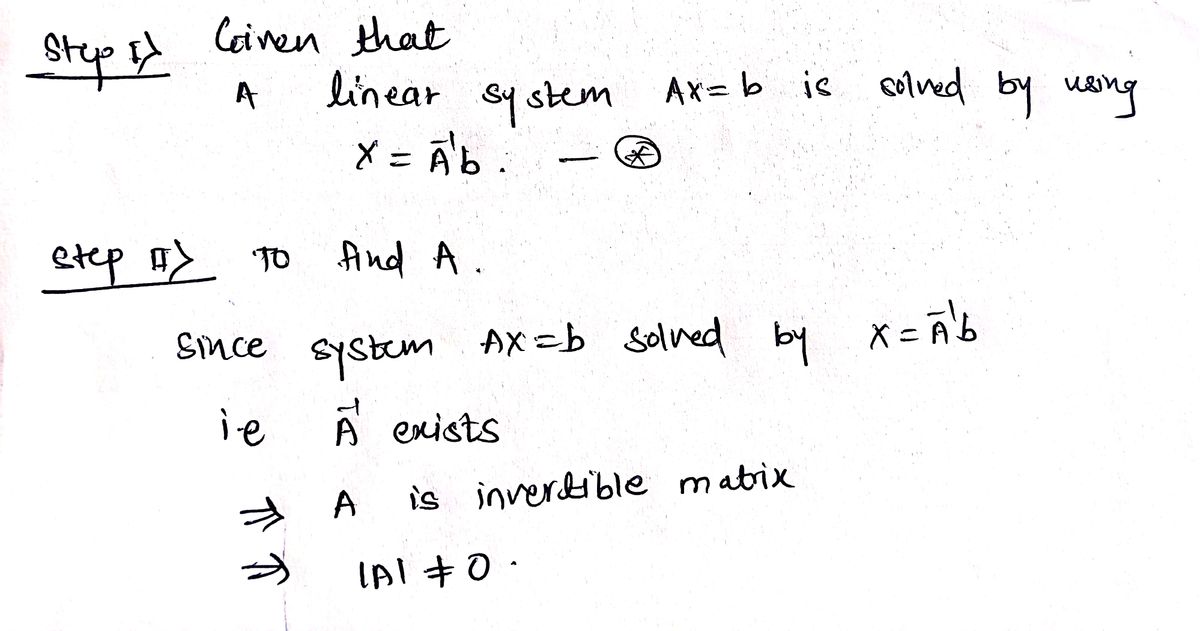 Step I⟩ Given that
A linear system AX = b is solved by using
X = A⁻¹b. — ⊛
Step II⟩ To find A.
Since system AX = b solved by X = A⁻¹b
i.e A⁻¹ exists
⇒ A is invertible matrix
⇒ |A| ≠ 0.